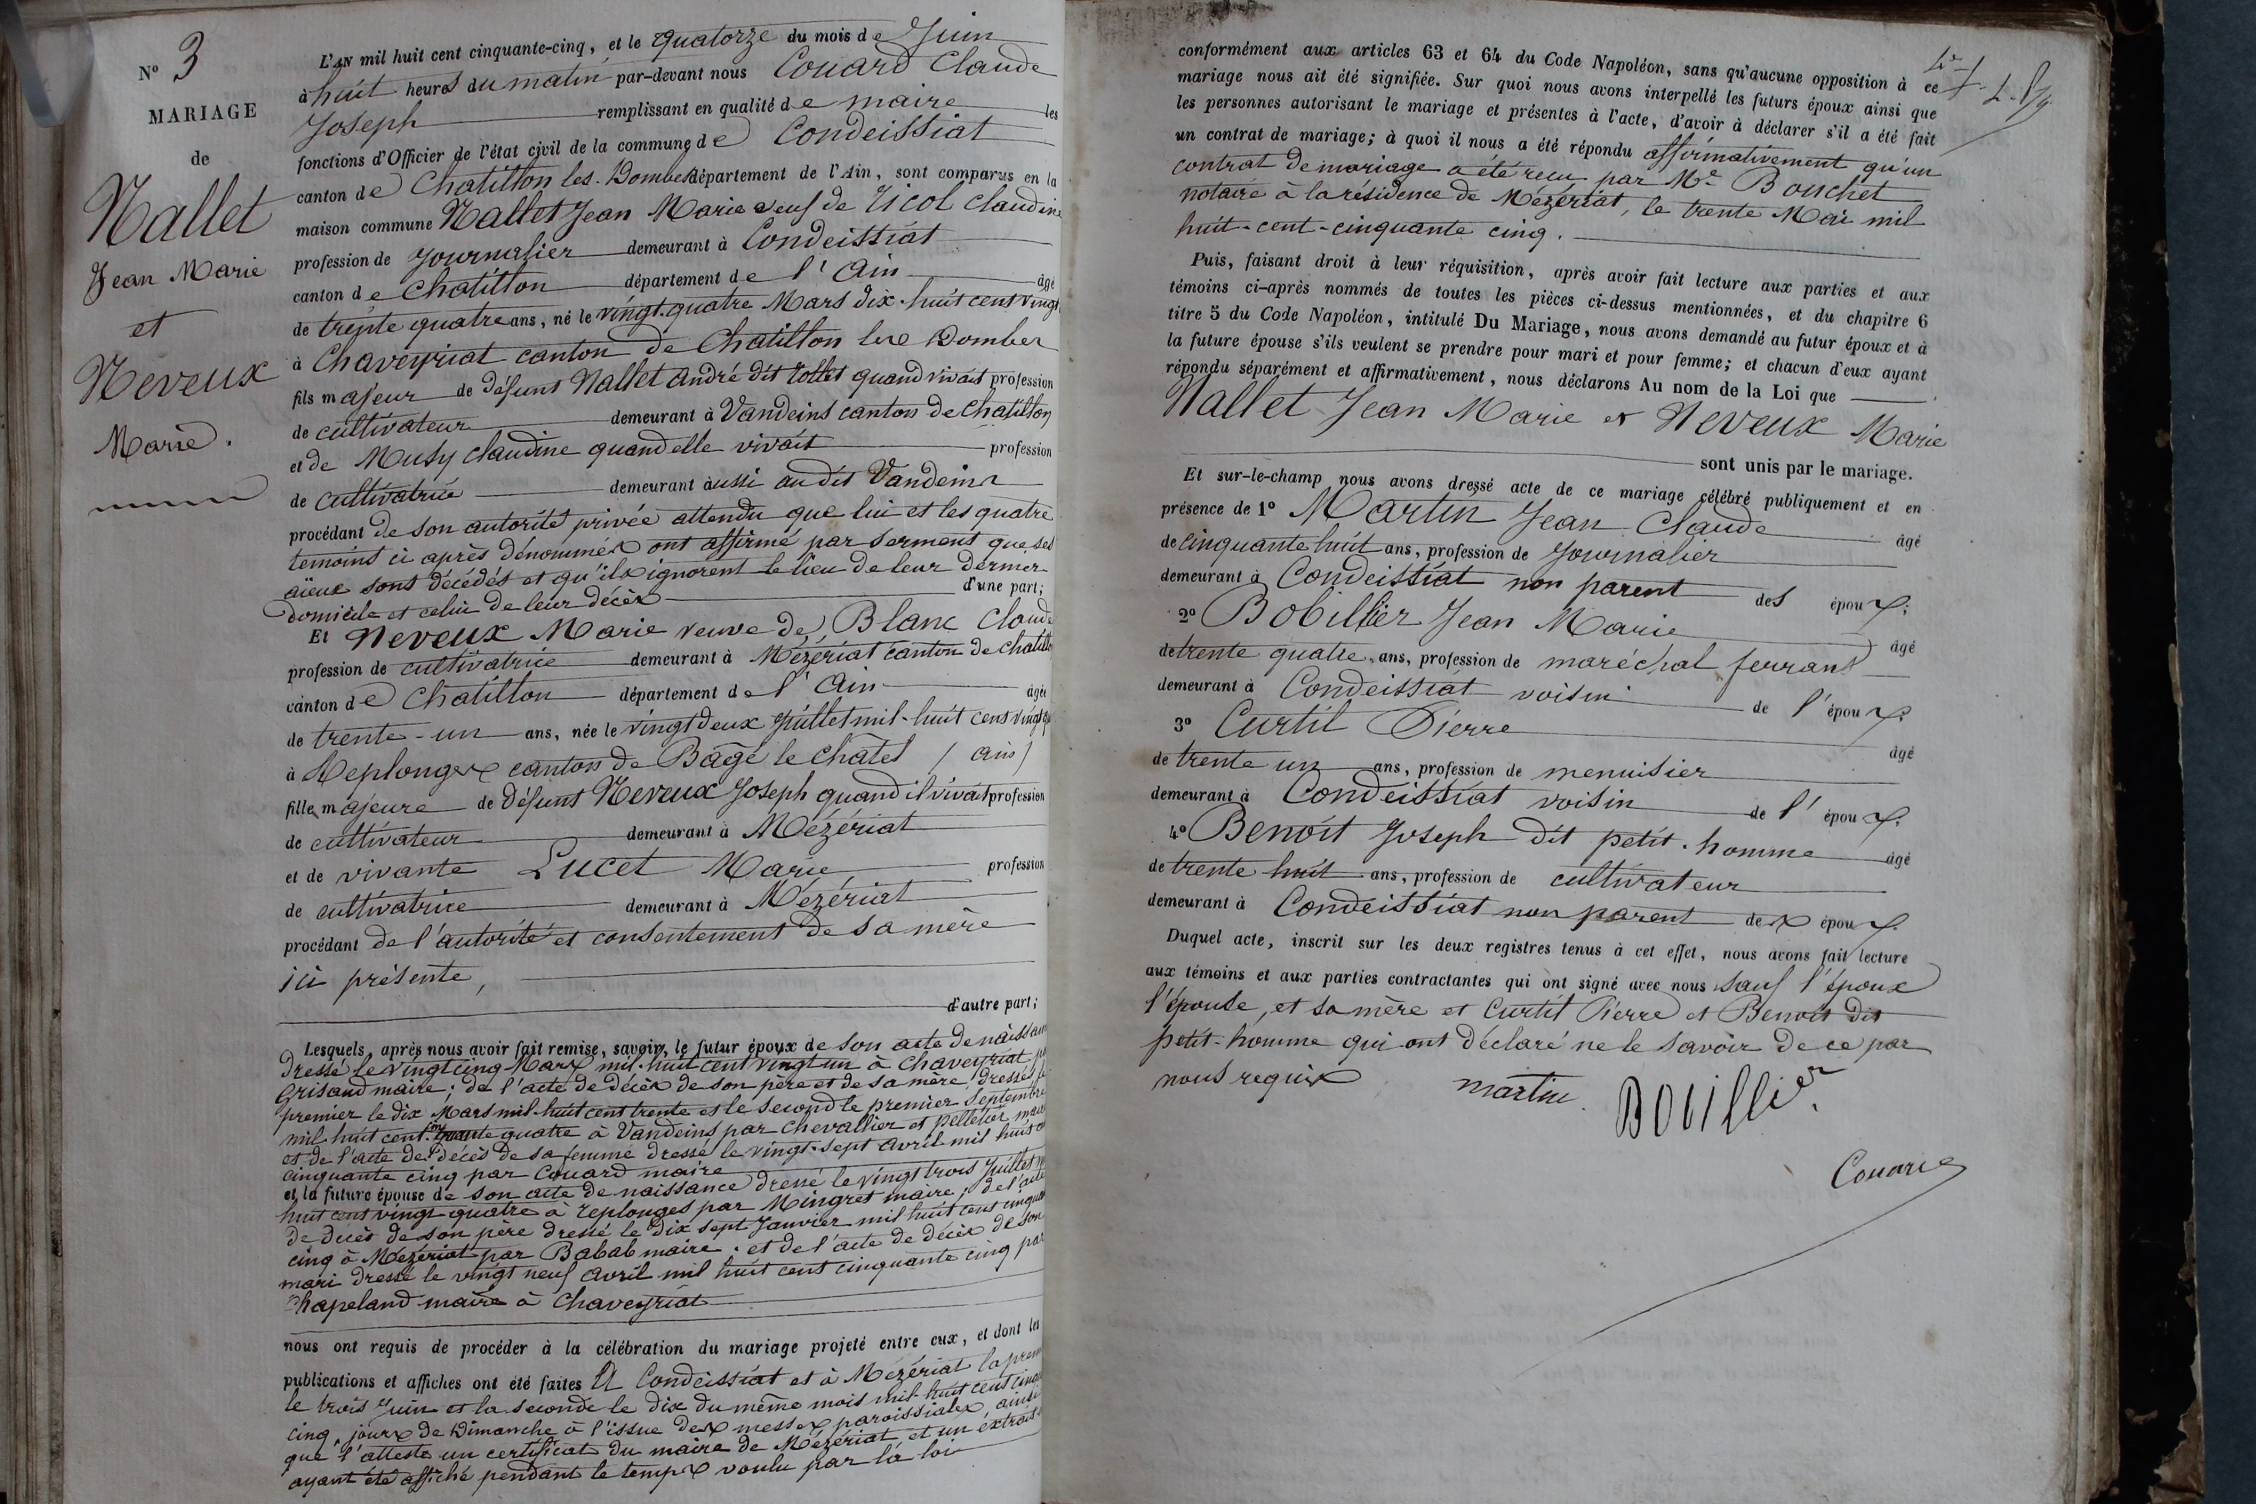 N° 3
MARIAGE
de
Nallet
Jean Marie
et
Neveux
Marie.
L'AN mil huit cent cinquante-cinq, et le quatorze du mois de Juin
à huit heures du matin par-devant nous Couard Claude
Joseph remplissant en qualité de maire les
fonctions d'Officier de l'état civil de la commune de Condeissiat
canton de Chatillon les Dombes département de l'Ain, sont comparus en la
maison commune Nallet Jean Marie veuf de Ticol Claudine
profession de Journalier demeurant à Condeissiat
canton de Chatillon département de l'Ain âgé
de trente quatre ans, né le vingt-quatre Mars dix-huit cent vingt
à Chaveyriat canton de Chatillon les Dombes
fils majeur de défunt Nallet André dit quand vivait profession
de cultivateur demeurant à Vandeins canton de Chatillon
et de Musy Claudine quand elle vivait profession
de cultivatrice demeurant aussi au dit Vandeins
procédant de son autorité privée attendu que lui et les quatre
temoins ci après dénommés ont affirmé par serment que ses
aïeux sont décédés et qu'ils ignorent le lieu de leur dernier
domicile et celui de leur décès d'une part;
Et Neveux Marie veuve de Blanc Claude
profession de cultivatrice demeurant à Mézériat canton de Chatillo
canton de Chatillon département de l'Ain âgée
de trente-un ans, née le vingt deux Juillet mil-huit cent vingt
à Replonges canton de Bâgé le Châtel (ain)
fille majeure de défunt Neveux Joseph quand il vivait profession
de cultivateur demeurant à Mézériat
et de vivante Lucet Marie profession
de cultivatrice demeurant à Mézériat
procédant de l'autorité et consentement de sa mère
ici présente,
d'autre part;
Lesquels, après nous avoir fait remise, savoir, le futur époux de son acte de naissan
dressé le vingt cinq Mars mil-huit cent vingt un à Chaveyriat
Grisand maire; de l'acte de décès de son père et de sa mère, dressés
premier le dix Mars mil-huit cent trente et le second le premier septembre
mil huit cent quatre à Vandeins par Chevallier et Pelletier
et de l'acte de décès de sa femme dressé le vingt-sept avril mil huit
cinquante cinq par Couard maire
et la future épouse de son acte de naissance dressé le vingt trois Juillet
huit cent vingt quatre à Replonges par Mingret maire; de l'acte
de décès de son père dressé le dix sept Janvier mil huit cent cinqua
cinq à Mézériat par Babab maire. et de l'acte de décès de son
mari dressé le vingt neuf avril mil huit cent cinquante cinq par
Chapeland maire à Chaveyriat
nous ont requis de procéder à la célébration du mariage projeté entre eux, et dont les
publications et affiches ont été faites A Condeissiat et à Mézériat la prem
le trois Juin et la seconde le dix du même mois mil-huit cent cinqu
cinq, jours de Dimanche à l'issue des messes paroissiales, ainsi
que l'atteste un certificat du maire de Mézériat et un extrait
ayant été affiché pendant le temps voulu par la loi
conformément aux articles 63 et 64 du Code Napoléon, sans qu'aucune opposition à ce
mariage nous ait été signifiée. Sur quoi nous avons interpellé les futurs époux ainsi que
les personnes autorisant le mariage et présentes à l'acte, d'avoir à déclarer s'il a été fait
un contrat de mariage; à quoi il nous a été répondu affirmativement qu'un
contrat de mariage a été reçu par Me Bouchet
notaire à la résidence de Mézériat, le trente Mai mil
huit-cent-cinquante cinq.
Puis, faisant droit à leur réquisition, après avoir fait lecture aux parties et aux
témoins ci-après nommés de toutes les pièces ci-dessus mentionnées, et du chapitre 6
titre 5 du Code Napoléon, intitulé Du Mariage, nous avons demandé au futur époux et à
la future épouse s'ils veulent se prendre pour mari et pour femme; et chacun d'eux ayant
répondu séparément et affirmativement, nous déclarons Au nom de la Loi que
Nallet Jean Marie et Neveux Marie
sont unis par le mariage.
Et sur-le-champ nous avons dressé acte de ce mariage célébré publiquement et en
présence de 1° Martin Jean Claude
de cinquante huit ans, profession de Journalier âgé
demeurant à Condeissiat non parent des époux;
2° Bobillier Jean Marie
de trente quatre ans, profession de maréchal ferrant âgé
demeurant à Condeissiat voisin de l'époux;
3° Curtil Pierre
de trente un ans, profession de menuisier âgé
demeurant à Condeissiat voisin de l'époux;
4° Benoit Joseph dit petit-homme âgé
de trente huit ans, profession de cultivateur
demeurant à Condeissiat non parent des époux.
Duquel acte, inscrit sur les deux registres tenus à cet effet, nous avons fait lecture
aux témoins et aux parties contractantes qui ont signé avec nous sauf l'époux
l'épouse, et sa mère et Curtil Pierre et Benoit dit
petit-homme qui ont déclaré ne le savoir de ce par
nous requis
martin
BOUillier
Couard